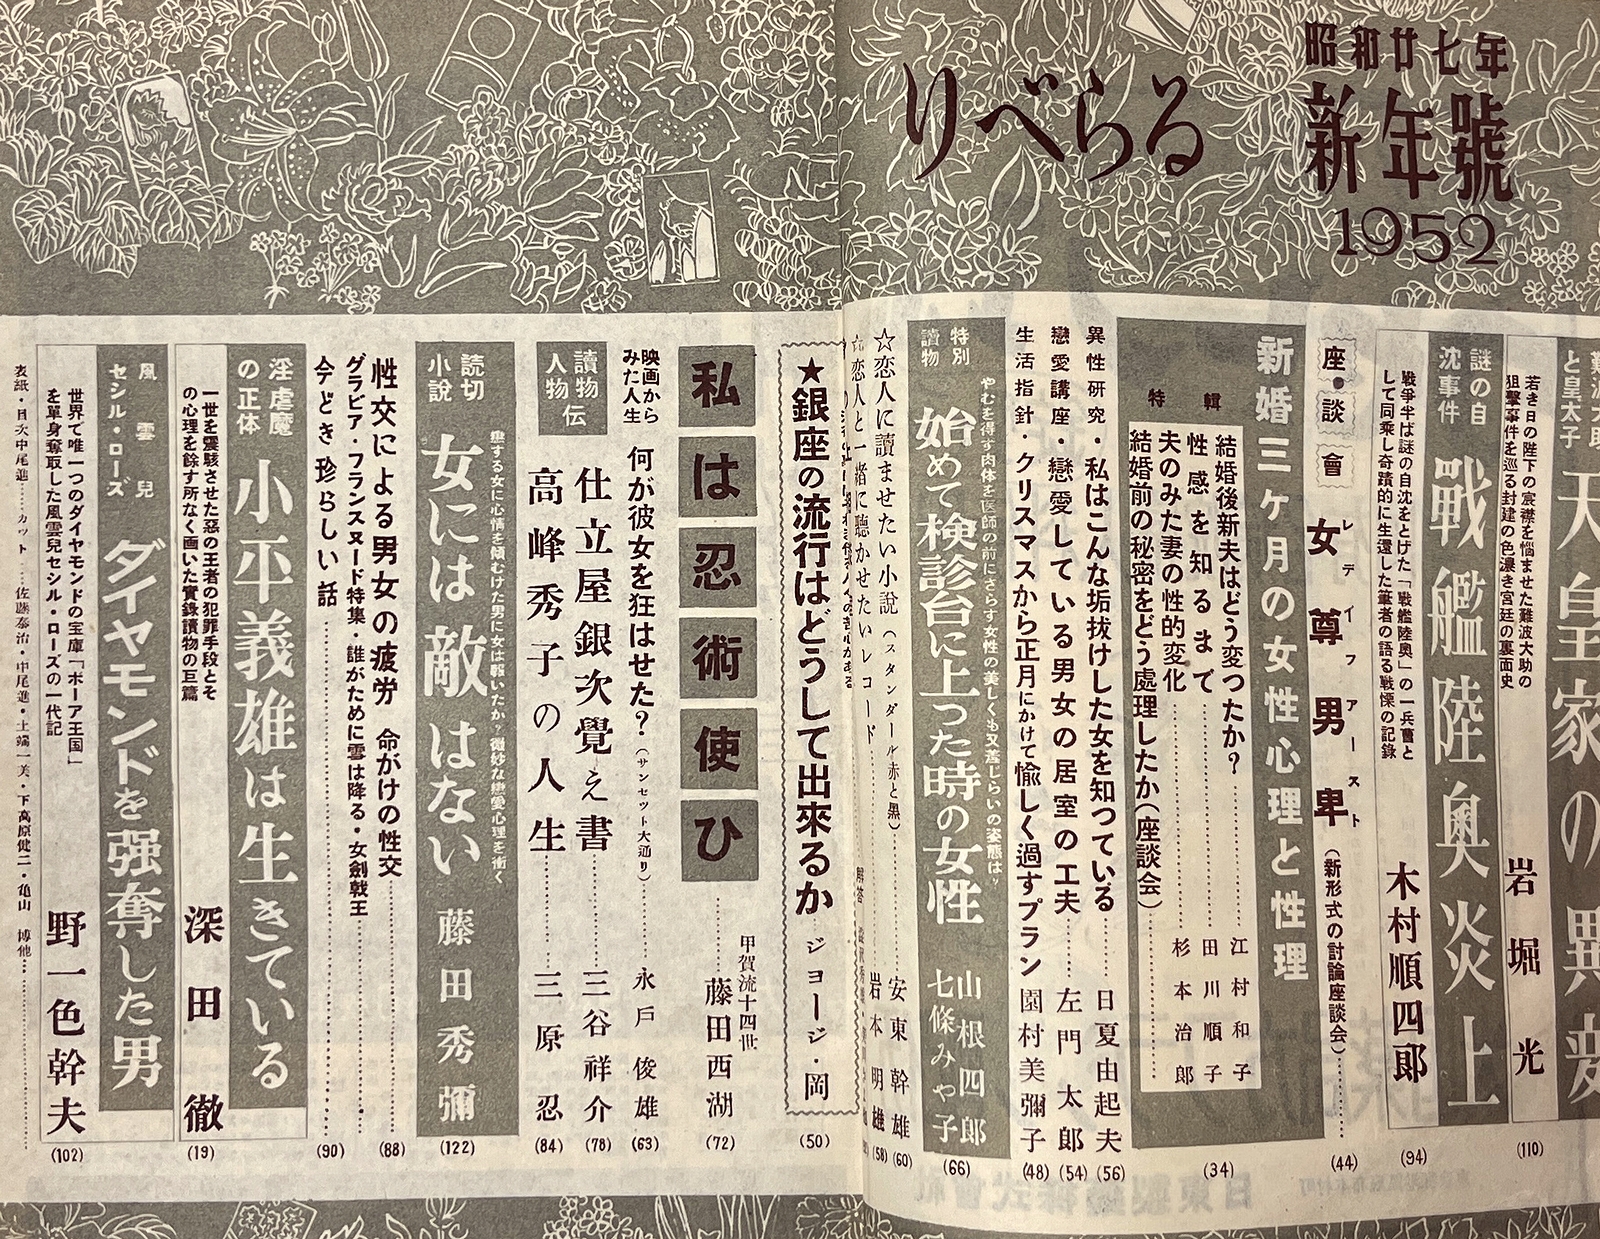 昭和廿七年
新年號
1952
りべらる
と皇太子
天皇家の異変
若き日の陛下の宸襟を悩ませた難波大助の
狙擊事件を巡る封建の色濃き宮廷の裏面史
岩堀光
(110)
謎の自
沈事件
戰艦陸奥炎上
戰爭半ば謎の自沈をとげた「戰艦陸奥」の一兵曹と
して同乘し奇蹟的に生還した筆者の語る戦慄の記錄
木村順四郎
(94)
座・談會
女尊男卑
レディファースト
(新形式の討論座談会)
(44)
新婚三ヶ月の女性心理と性理
特輯
結婚後新夫はどう変つたか?
江村和子
性感を知るまで
田川順子
夫のみた妻の性的変化
杉本治郎
結婚前の秘密をどう處理したか(座談会)
(34)
異性研究・私はこんな垢抜けした女を知つている
日夏由起夫
(56)
戀愛講座・戀愛している男女の居室の工夫
左門太郎
(54)
生活指針・クリスマスから正月にかけて愉しく過すプラン
園村美彌子
(48)
特別
讀物
やむを得ず肉体を医師の前にさらす女性の美しくも又羞じらいの姿態は。
始めて検診台に上つた時の女性
山根四郎
七條みや子
(66)
☆恋人に讀ませたい小說(スタンダール赤と黒)
安東幹雄
(60)
☆恋人と一緒に聴かせたいレコード
岩本明雄
(58)
★銀座の流行はどうして出來るか
ジョージ・岡
(50)
私は忍術使ひ
甲賀流十四世
藤田西湖
(72)
映画から
みた人生
何が彼女を狂はせた?(サンセット大通り)
永戸俊雄
(63)
讀物
人物伝
仕立屋銀次覺え書
三谷祥介
(78)
高峰秀子の人生
三原忍
(84)
読切
小說
戀する女に心情を傾むけた男に女は靡いたか?微妙な戀愛心理を衝く
女には敵はない
藤田秀彌
(122)
性交による男女の疲労 命がけの性交
(88)
グラビア・フランスヌード特集・誰がために雪は降る・女劍戟王
今どき珍らしい話
(90)
淫虐魔
の正体
小平義雄は生きている
一世を震駭させた惡の王者の犯罪手段とそ
の心理を餘す所なく画いた實錄讀物の巨篇
深田徹
(19)
風雲兒
セシル・ローズ
ダイヤモンドを强奪した男
世界で唯一つのダイヤモンドの宝庫「ボーア王国」
を單身奪取した風雲兒セシル・ローズの一代記
野一色幹夫
(102)
表紙・目次中尾進……カット……佐藤泰治・中尾進・土端一美・下高原健二・亀山博他